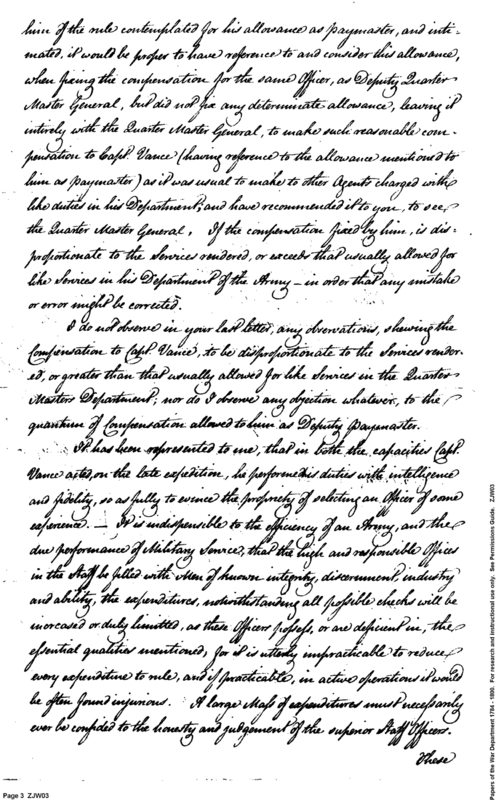 him of the rule contemplated for his allowance as paymaster, and inti-
mated, it would be proper to have reference to and consider this allowance,
when fixing the compensation for the same Officer, as Deputy Quarter
Master General, but did not fix any determinate allowance, leaving it
intirely with the Quarter Master General, to make such reasonable com-
pensation to Capt. Vance (having reference to the allowance mentioned to
him as paymaster) as it was usual to make to other Agents charged with
like duties in his Department; and have recommended it to you, to see,
the Quarter Master General, If the compensation fixed by him, is dis-
proportionate to the Services rendered, or exceeds that usually allowed for
like Services in his Department of the Army – in order that any mistake
or error might be corrected.
I do not observe in your last letter, any observations, shewing the
Compensation to Capt. Vance, to be disproportionate to the Services render-
ed, or greater than that usually allowed for like Services in the Quarter
Masters Department; nor do I observe any objection whatever, to the
quantum of Compensation allowed to him as Deputy Paymaster.
It has been represented to me, that in both the capacities Capt.
Vance acted, on the late expedition, he performed his duties with intelligence
and fidelity, so as fully to evince the propriety of selecting an Officer of some
experience. – It is indispensible to the efficiency of an Army, and the
due performance of Military Service, that the high and responsible Offices
in the Staff be filled with Men of known integrity, discernment, industry
and ability, the expenditures, notwithstanding all possible checks will be
increased or duly limitted, as these Officers possess, or are deficient in, the
essential qualities mentioned, for it is utterly impracticable to reduce
every expenditure to rule, and if practicable, in active operations it would
be often found injurious. A large Mass of expenditures must necessarily
ever be confided to the honesty and judgement of the superior Staff Officers.
These
Page 3 ZJW03
Papers of the War Department 1784 - 1800. For research and instructional use only. See Permissions Guide. ZJW03